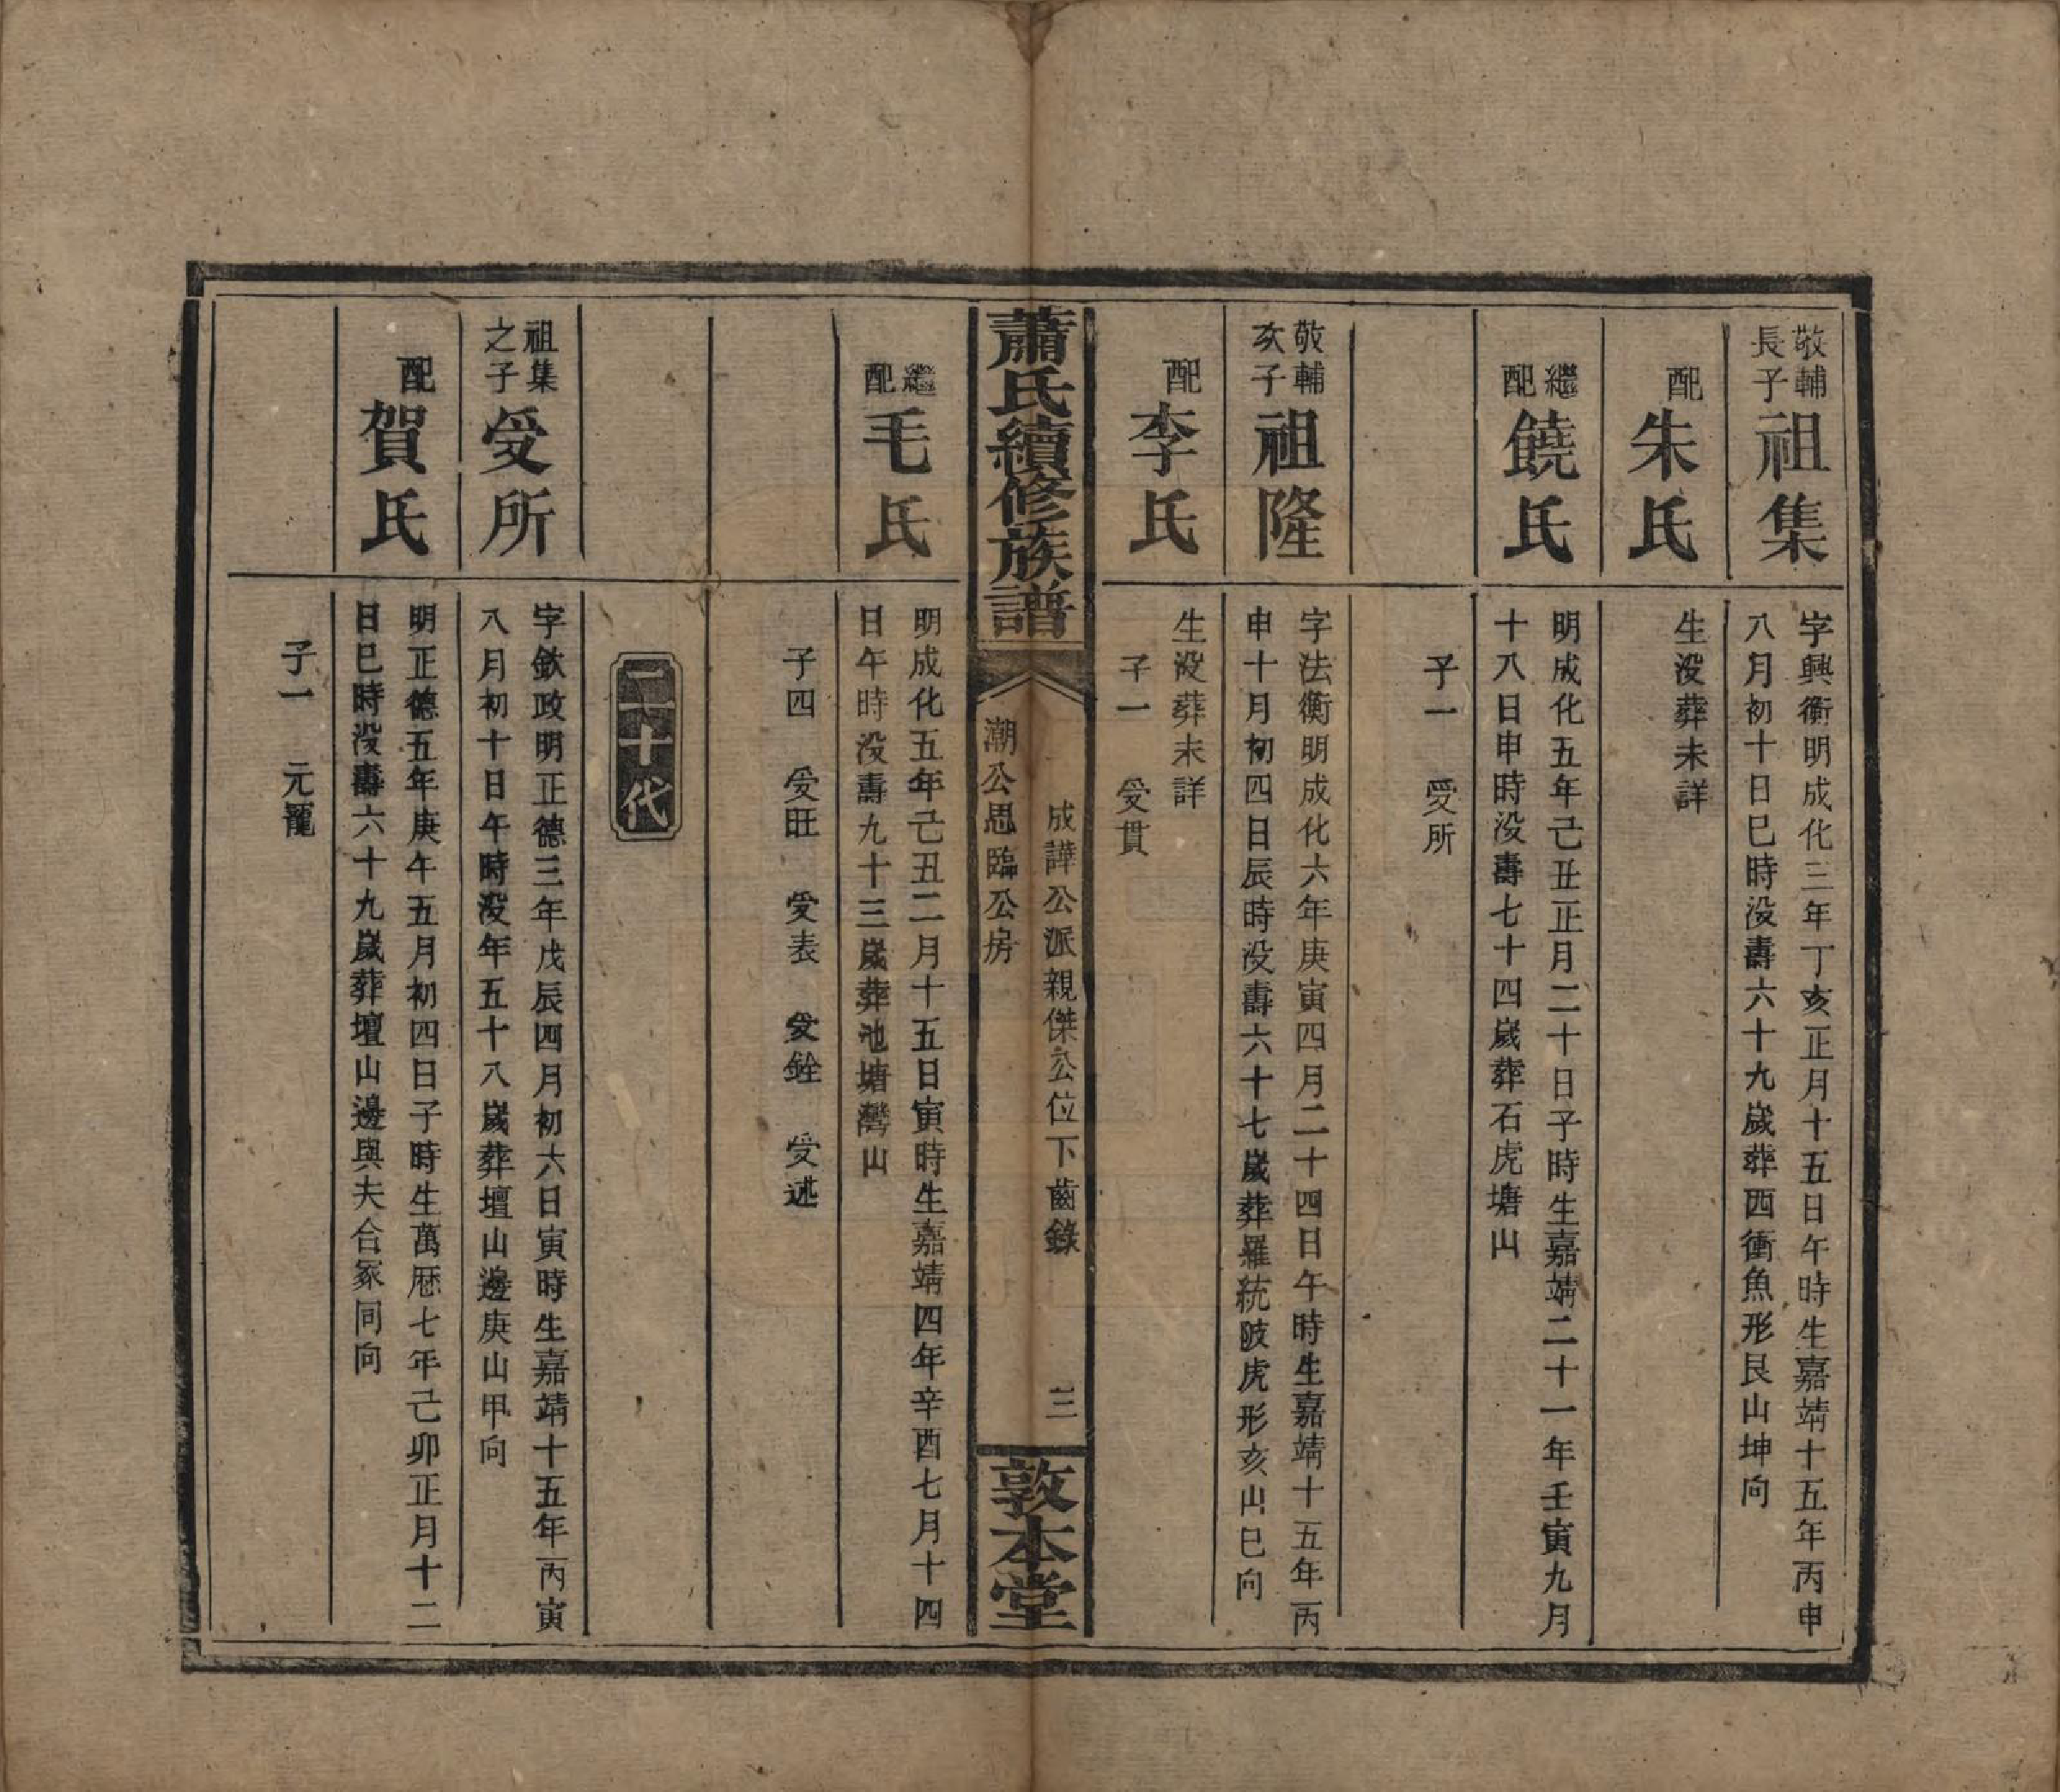 敬輔
長子
祖集
字興衡明成化三年丁亥正月十五日午時生嘉靖十五年丙申
八月初十日巳時没壽六十九歲葬西衝魚形艮山坤向
配
朱氏
生没葬未詳
繼
配
饒氏
明成化五年己丑正月二十日子時生嘉靖二十一年壬寅九月
十八日申時没壽七十四歲葬石虎塘山
子一 受所
敬輔
次子
祖隆
字法衡明成化六年庚寅四月二十四日午時生嘉靖十五年丙
申十月初四日辰時没壽六十七歲葬羅統陂虎形亥山巳向
配
李氏
生没葬未詳
子一 受貫
蕭氏續修族譜
成譁公派親傑公位下齒錄
潮公思臨公房
三
敦本堂
繼
配
毛氏
明成化五年己丑二月十五日寅時生嘉靖四年辛酉七月十四
日午時没壽九十三歲葬池塘灣山
子四 受旺 受表 受銓 受述
二十代
祖集
之子
受所
字欽政明正德三年戊辰四月初六日寅時生嘉靖十五年丙寅
八月初十日午時没年五十八歲葬壇山邊庚山甲向
配
賀氏
明正德五年庚午五月初四日子時生萬厯七年己卯正月十二
日巳時没壽六十九歲葬壇山邊與夫合冢同向
子一 元寵